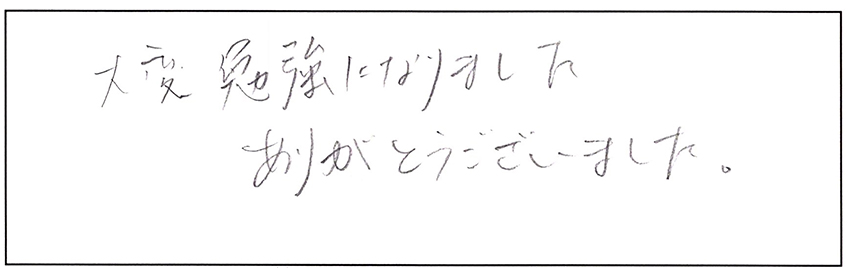 大変勉強になりました
ありがとうございました。